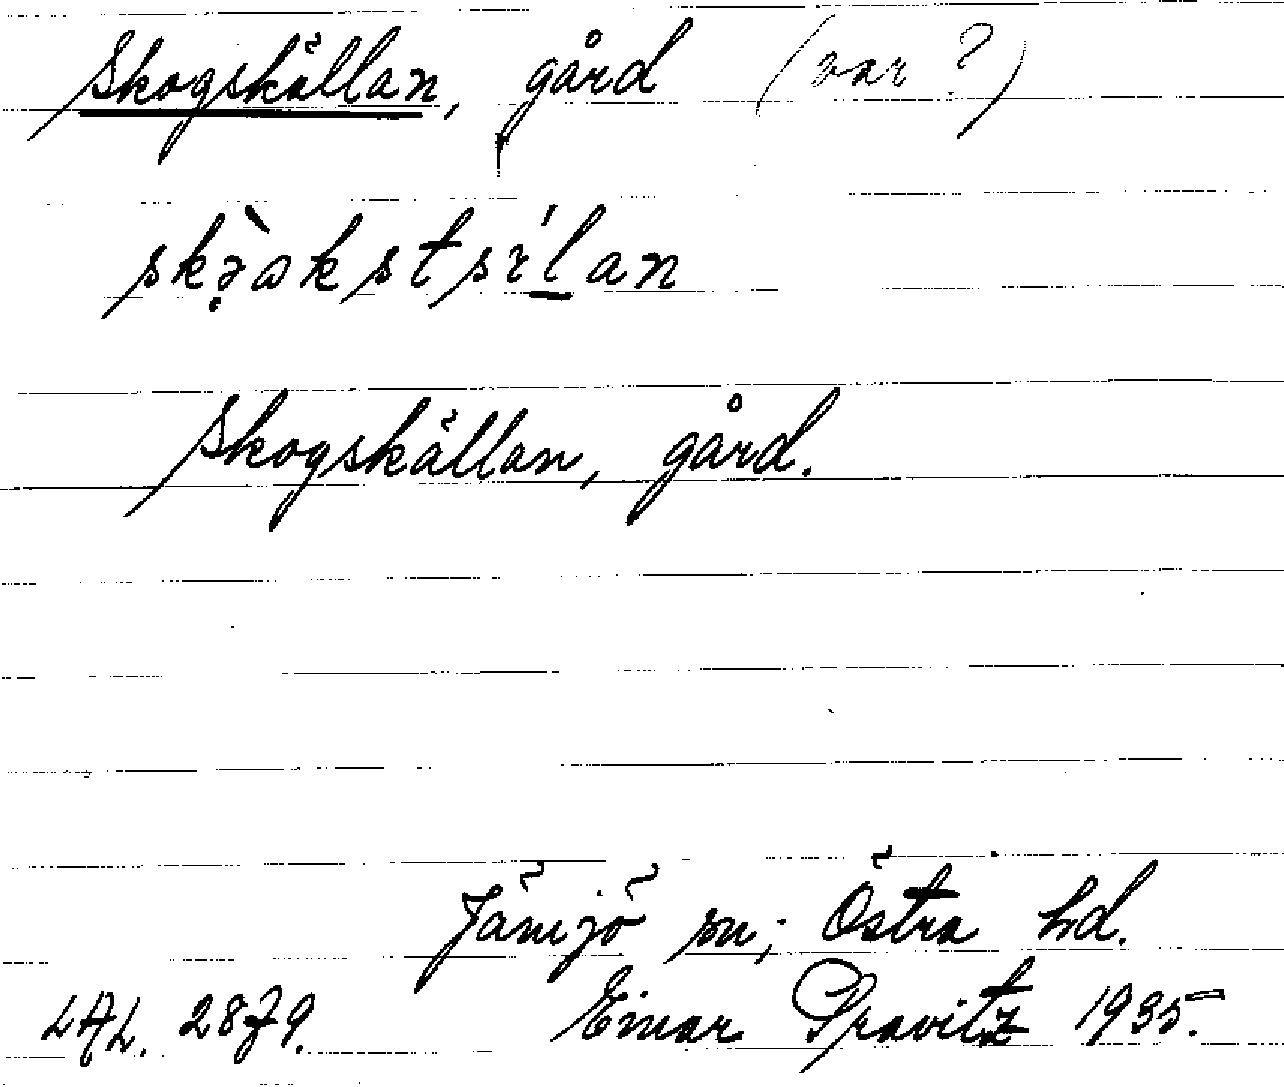 Skogskällan, gård (var ?)
skə̣̀ɷkstsɪ́l̲an
Skogskällan, gård.
Jämjö sn; Östra hd.
LAL. 2879. Einar Pravitz 1935.